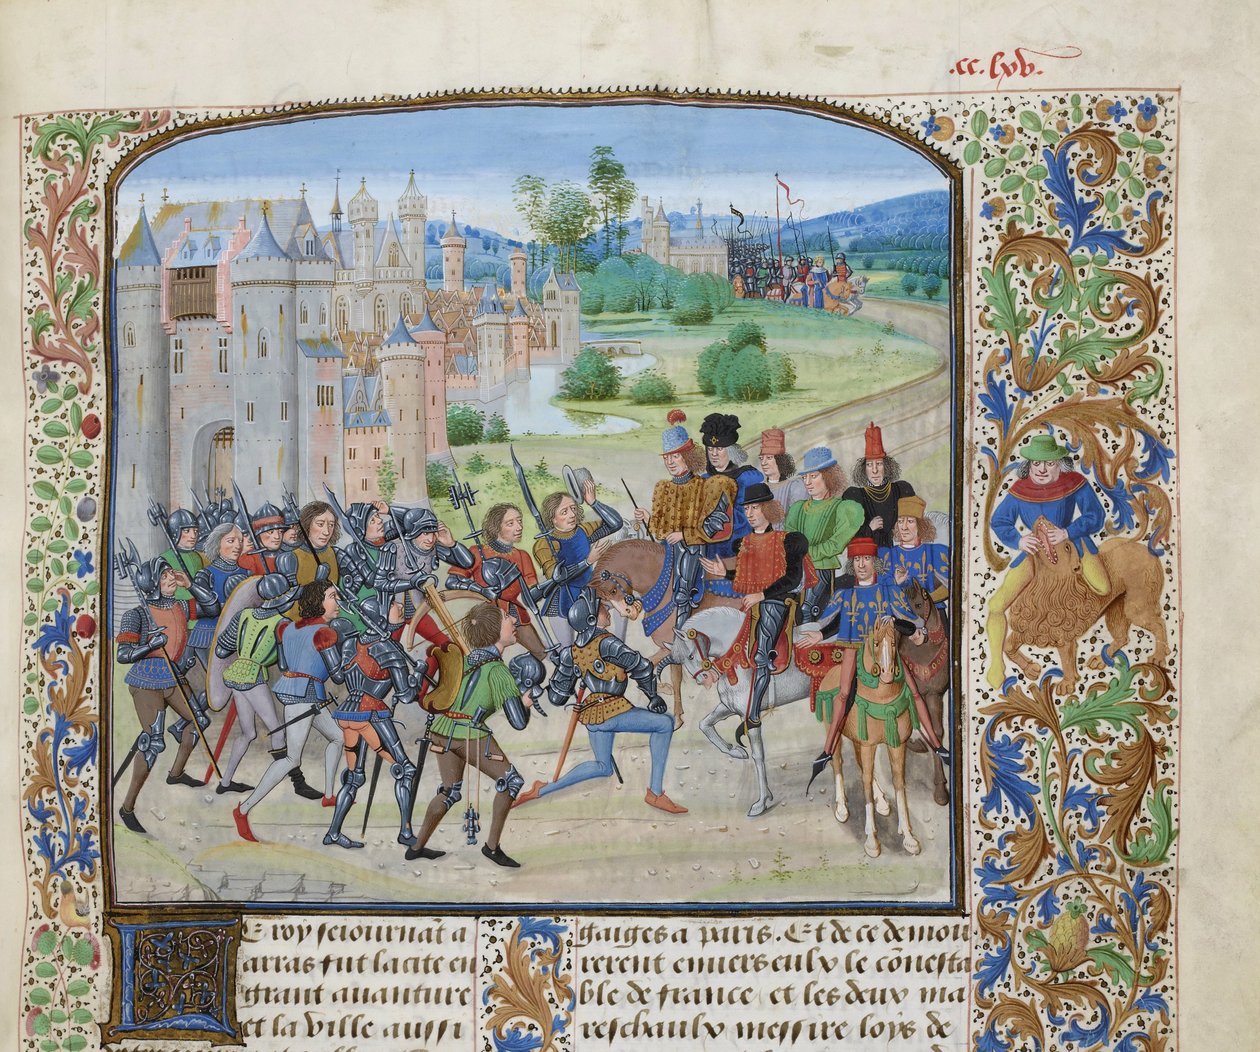 .cc.lxv.
Le roy seiournāt a
arras fut la cite en
grant auanture
et la ville aussi
gaiges a paris. Et de ce demou
rerent enuers eulx le cōnesta
ble de france et les deux ma
reschaulx messire loys de